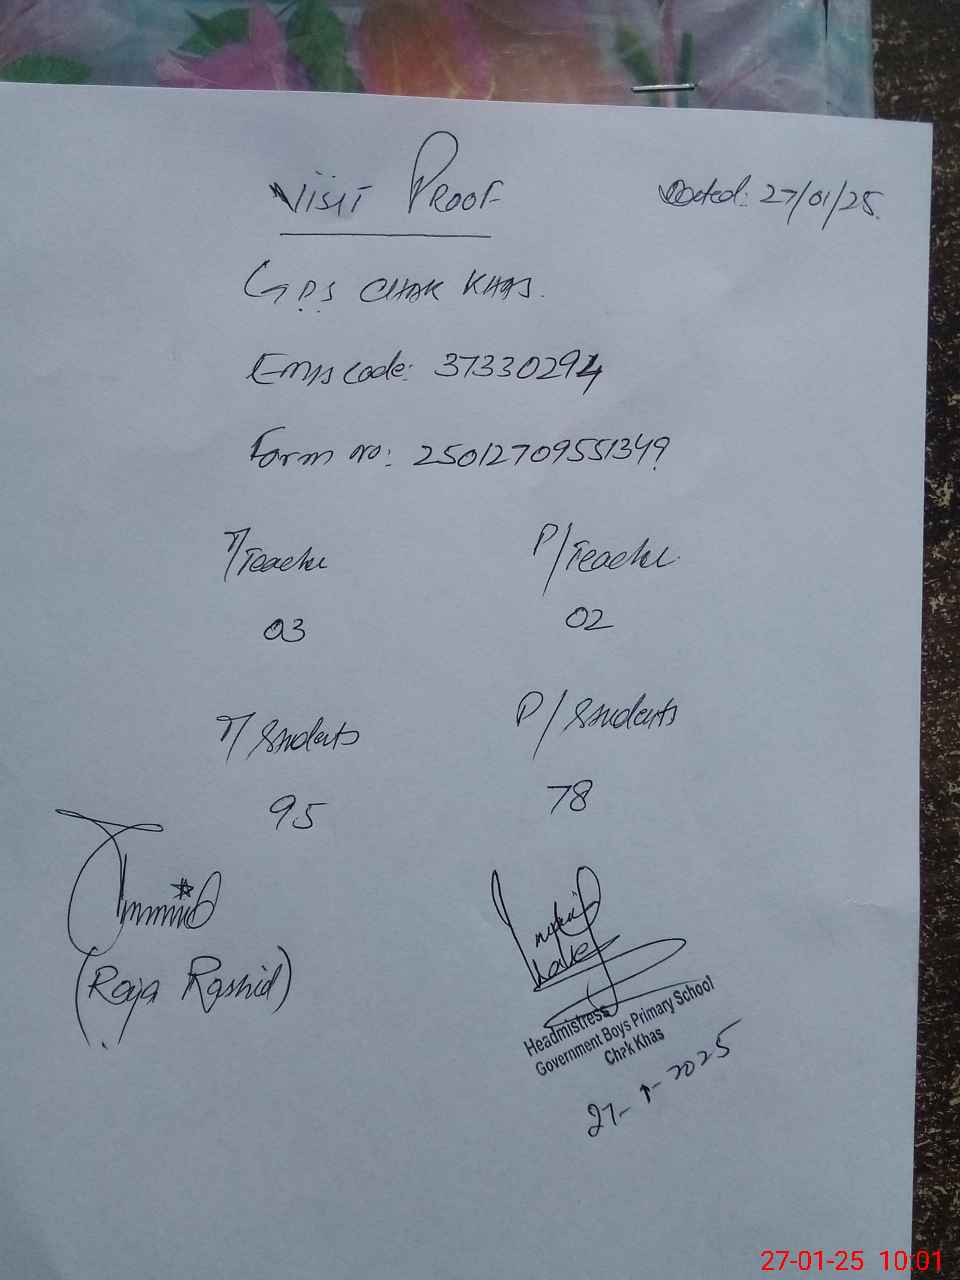 Visit Proof
Dated: 27/01/25.
G.P.S CHAK KHAS.
Emis code: 37330294
Form no: 25012709551349
T/Teache
P/Teache
03
02
T/Students
P/Students
95
78
(Raja Rashid)
Headmistress
Government Boys Primary School
Chak Khas
27-1-2025
27-01-25 10:01